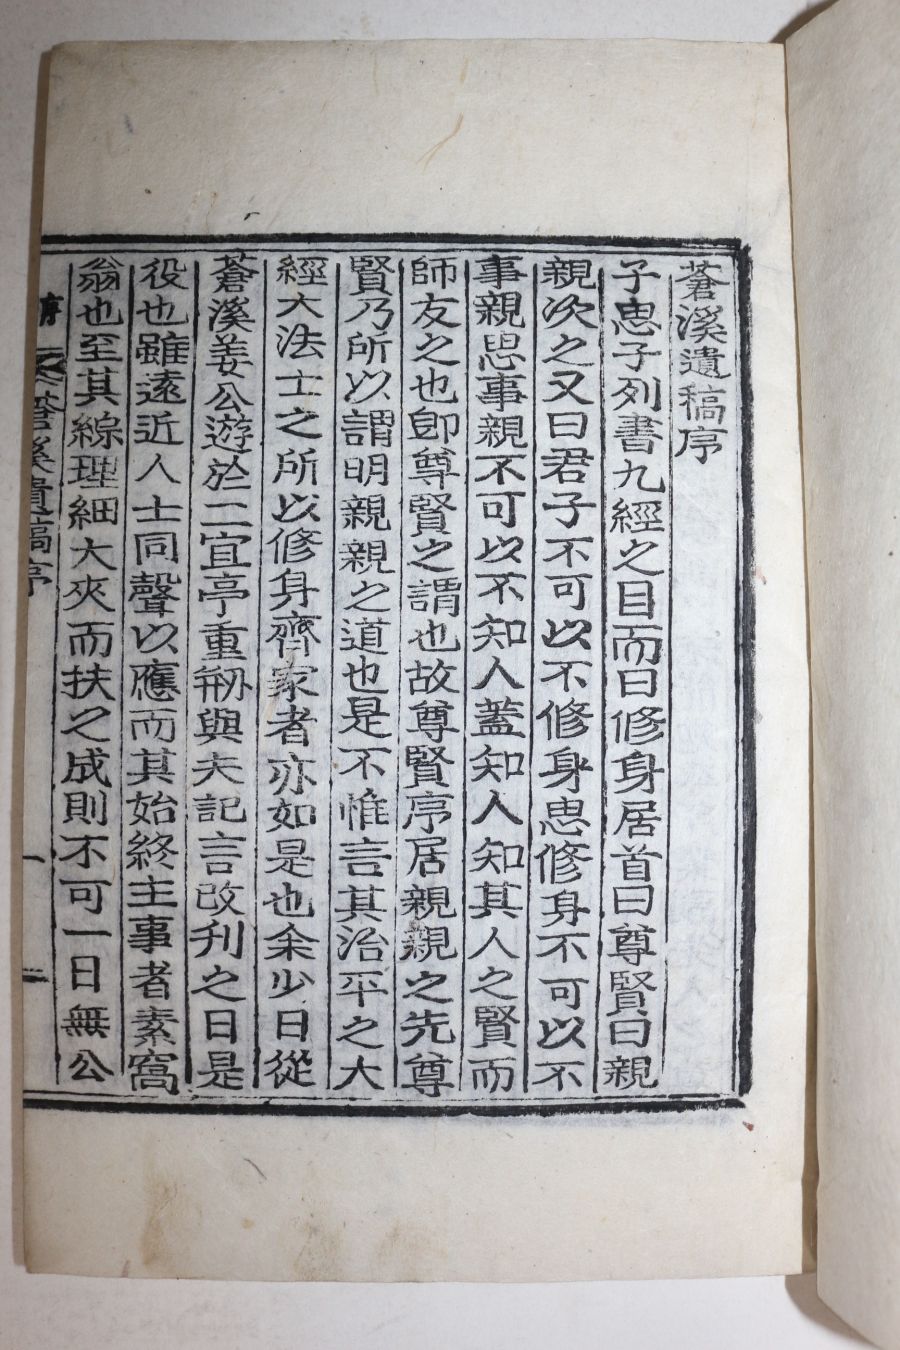 蒼溪遺稿序
子思子列書九經之目而曰修身居首曰尊賢曰親
親次之又曰君子不可以不修身思修身不可以不
事親思事親不可以不知人蓋知人知其人之賢而
師友之也卽尊賢之謂也故尊賢序居親親之先尊
賢乃所以謂明親親之道也是不惟言其治平之大
經大法士之所以修身齊家者亦如是也余少日從
蒼溪姜公遊於二宜亭重刱與夫記言改刋之日是
役也雖遠近人士同聲以應而其始終主事者素窩
翁也至其綜理細大夾而扶之成則不可一日無公
蒼溪遺稿序